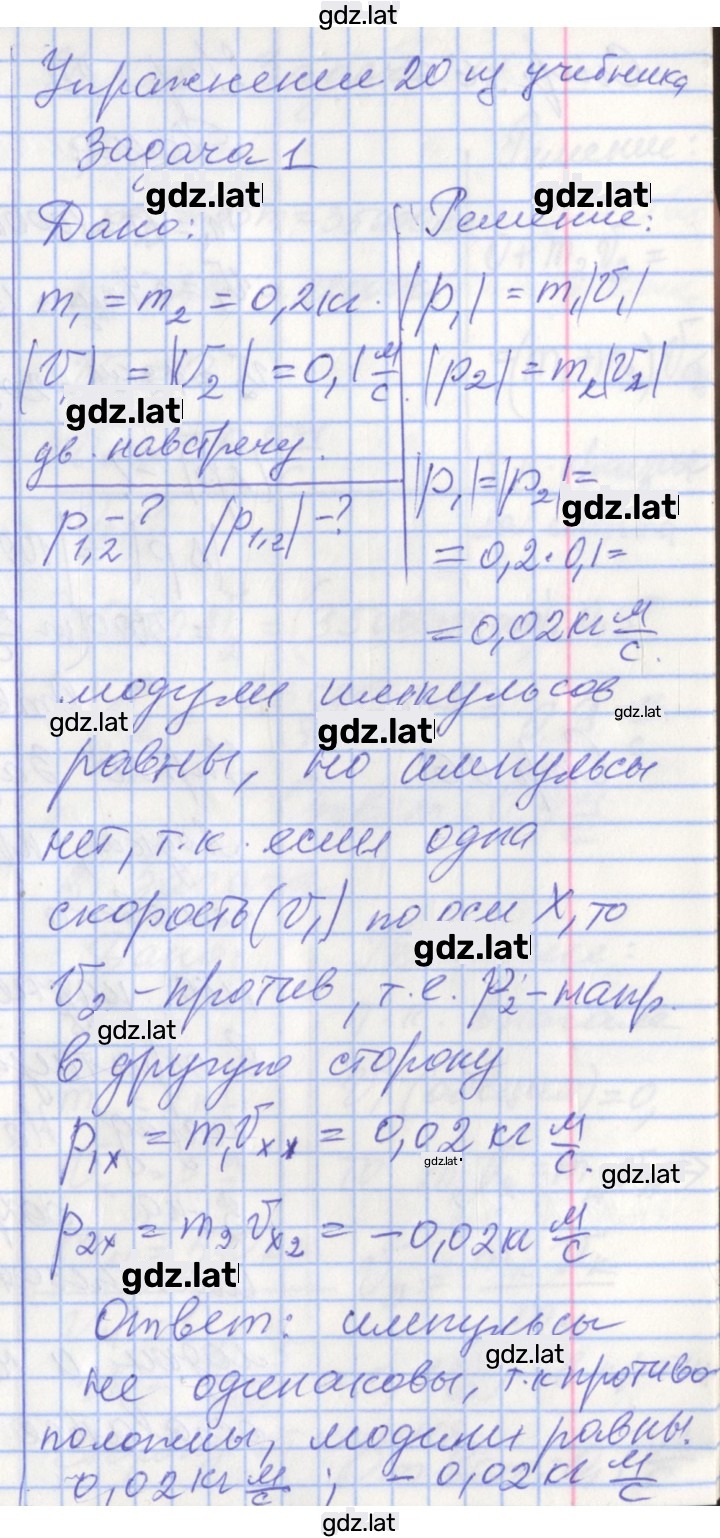 gdz.lat
Упражнение 20 из учебника
Задача 1
gdz.lat gdz.lat
Дано: Решение:
m₁ = m₂ = 0,2 кг. |p₁| = m₁|v₁|
|v₁| = |v₂| = 0,1 м/с. |p₂| = m₂|v₂|
gdz.lat
дв. навстречу.
|p₁| = |p₂| =
gdz.lat
p₁,₂ - ? |p₁,₂| - ?
= 0,2 · 0,1 =
= 0,02 кг м/с.
модули импульсов
gdz.lat gdz.lat gdz.lat
равны, но импульсы
нет, т.к. если одна
скорость (v₁) по оси X, то
gdz.lat
v₂ - против, т.е. p₂ - напр.
gdz.lat
в другую сторону
p₁ₓ = m₁vₓₓ = 0,02 кг м/с.
gdz.lat gdz.lat
p₂ₓ = m₂vₓ₂ = -0,02 кг м/с
gdz.lat
Ответ: импульсы
gdz.lat
не одинаковы, т.к противо
положны, модули равны.
0,02 кг м/с ; - 0,02 кг м/с
gdz.lat